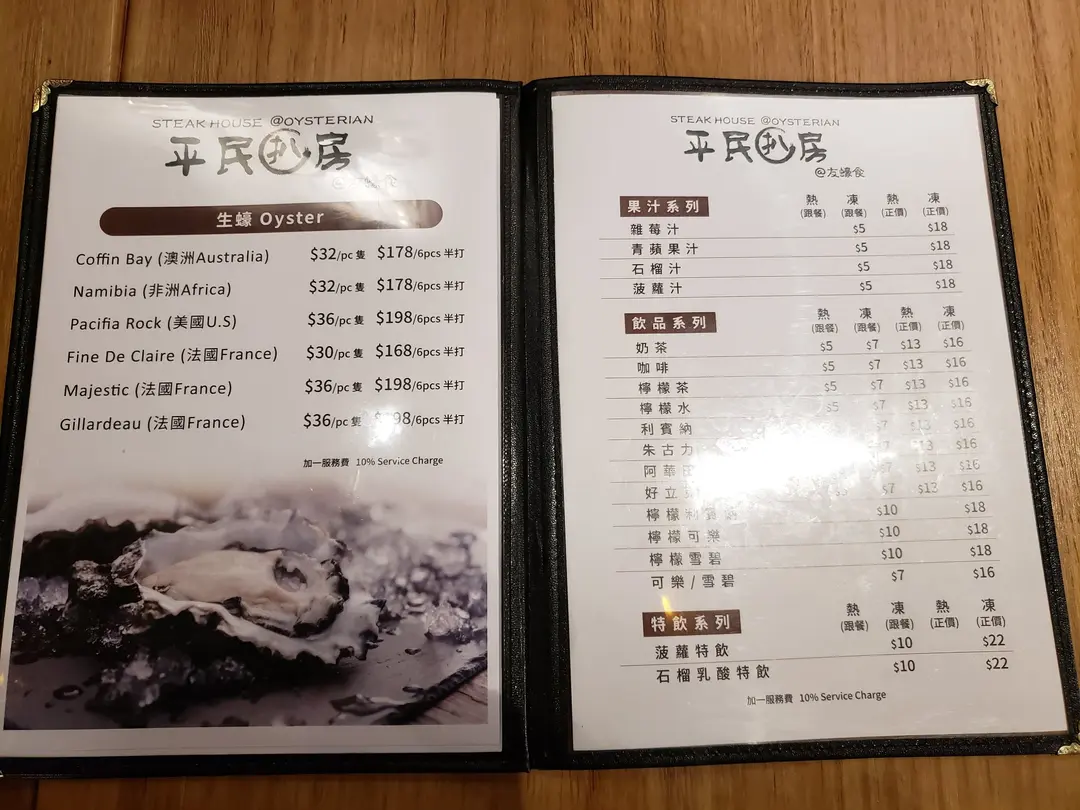 STEAK HOUSE @OYSTERIAN
平民扒房
生蠔 Oyster
Coffin Bay (澳洲Australia) $32/pc 隻 $178/6pcs 半打
Namibia (非洲Africa) $32/pc 隻 $178/6pcs 半打
Pacifia Rock (美國U.S) $36/pc 隻 $198/6pcs 半打
Fine De Claire (法國France) $30/pc 隻 $168/6pcs 半打
Majestic (法國France) $36/pc 隻 $198/6pcs 半打
Gillardeau (法國France) $36/pc 隻 98/6pcs 半打
加一服務費 10% Service Charge
STEAK HOUSE @OYSTERIAN
平民扒房
@友蠔食
果汁系列 熱 凍 熱 凍
(跟餐) (跟餐) (正價) (正價)
雜莓汁 $5 $18
青蘋果汁 $5 $18
石榴汁 $5 $18
菠蘿汁 $5 $18
飲品系列 熱 凍 熱 凍
(跟餐) (跟餐) (正價) (正價)
奶茶 $5 $7 $13 $16
咖啡 $5 $7 $13 $16
檸檬茶 $5 $7 $13 $16
檸檬水 $5 $7 $13 $16
利賓納 $7 $13 $16
朱古力 $13 $16
阿華 $7 $13 $16
好立 $7 $13 $16
檸檬利賓 $10 $18
檸檬可樂 $10 $18
檸檬雪碧 $10 $18
可樂/雪碧 $7 $16
特飲系列 熱 凍 熱 凍
(跟餐) (跟餐) (正價) (正價)
菠蘿特飲 $10 $22
石榴乳酸特飲 $10 $22
加一服務費 10% Service Charge